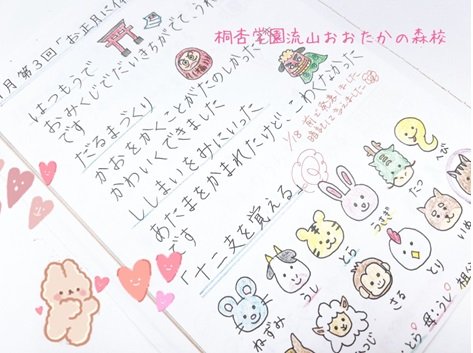 桐杏学園流山おおたかの森校
月 第3回「お正月に
はつもうで
おみくじでだいきちがでて、うれ
です
だるまづくり
かおをかくことがたのしかった
かわいくできました
ししまいをみにいった
あたまをかまれたけど、こわくなかった
です
「十二支を覚える」
1/18 前で発表しました
ねずみ
うし
とら
うさぎ
たつ
へび
ひつじ
さる
とり
いぬ